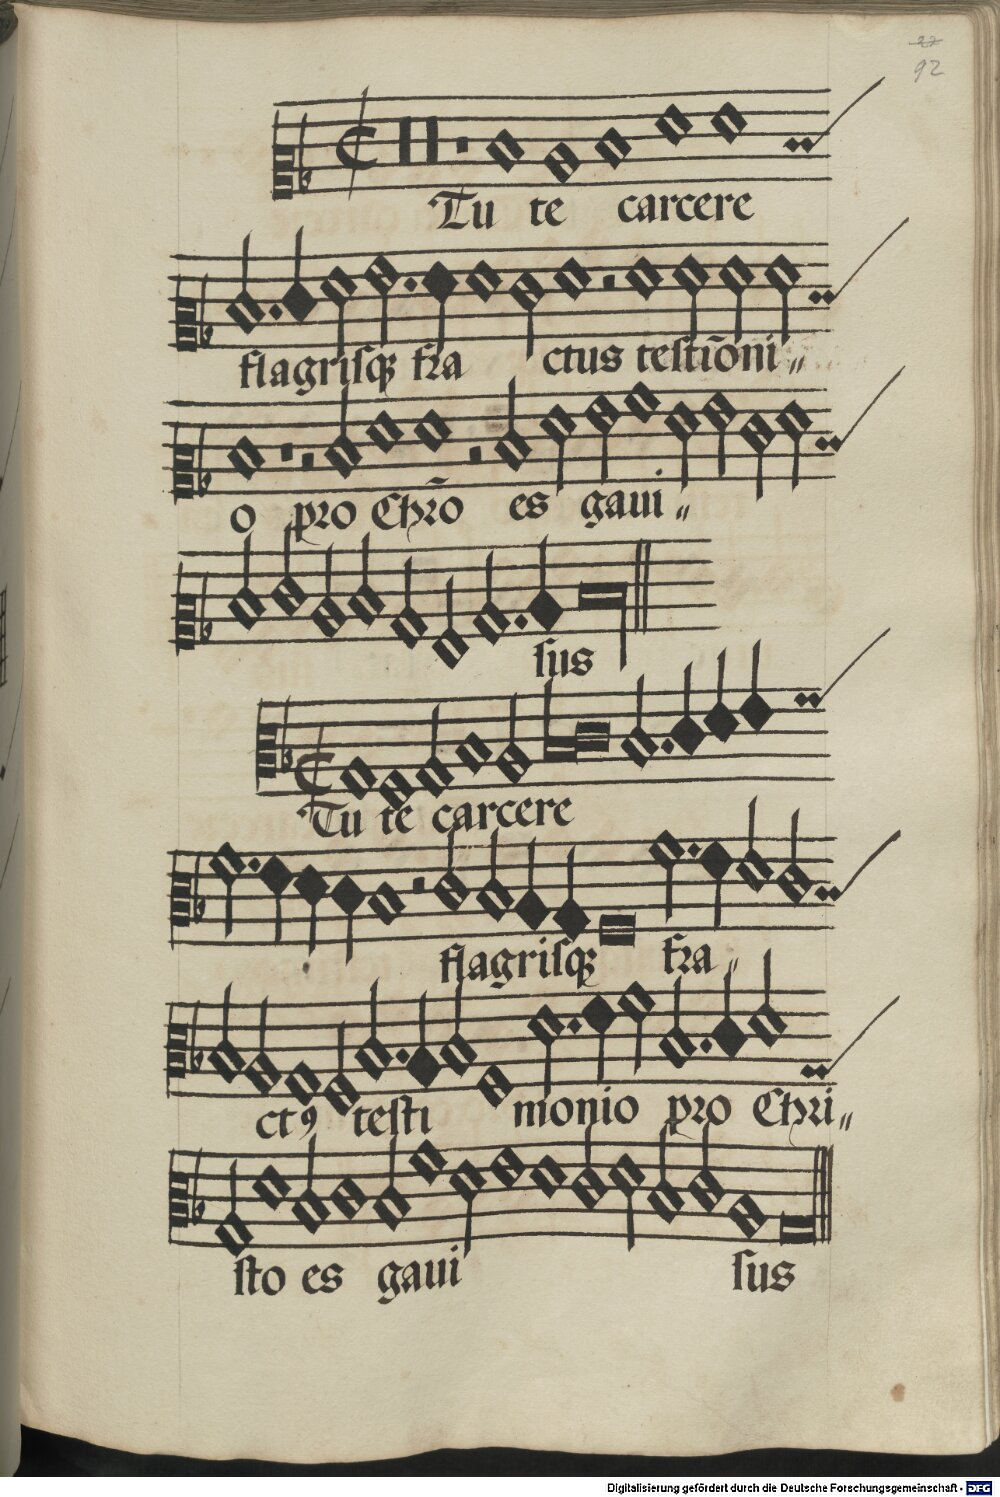 27
92
Tu te carcere
flagrisqꝫ fra ctus testiōni〃
o pro Chrō es gaui〃
sus
Tu te carcere
flagrisqꝫ fra〃
ctꝰ testi monio pro Chri〃
sto es gaui sus
Digitalisierung gefördert durch die Deutsche Forschungsgemeinschaft - DFG